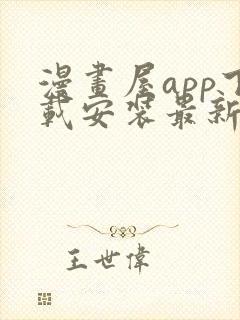 漫畫屋app下
載安裝最新
王世偉